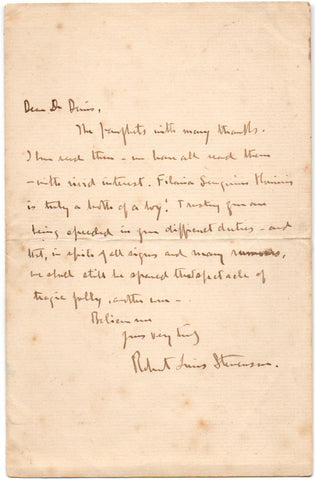 Dear Dr Davis,
The pamphlets with many thanks.
I have read them – we have all read them
– with vivid interest. Filaria Sanguinis Hominis
is truly a broth of a boy! Trusting you are
being speeded in your different duties – and
that, in spite of all signs and many rumours,
we shall still be spared the spectacle of
tragic folly, another war –
Believe me
yours very truly
Robert Louis Stevenson.